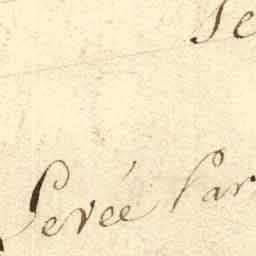 Te
Levée Par